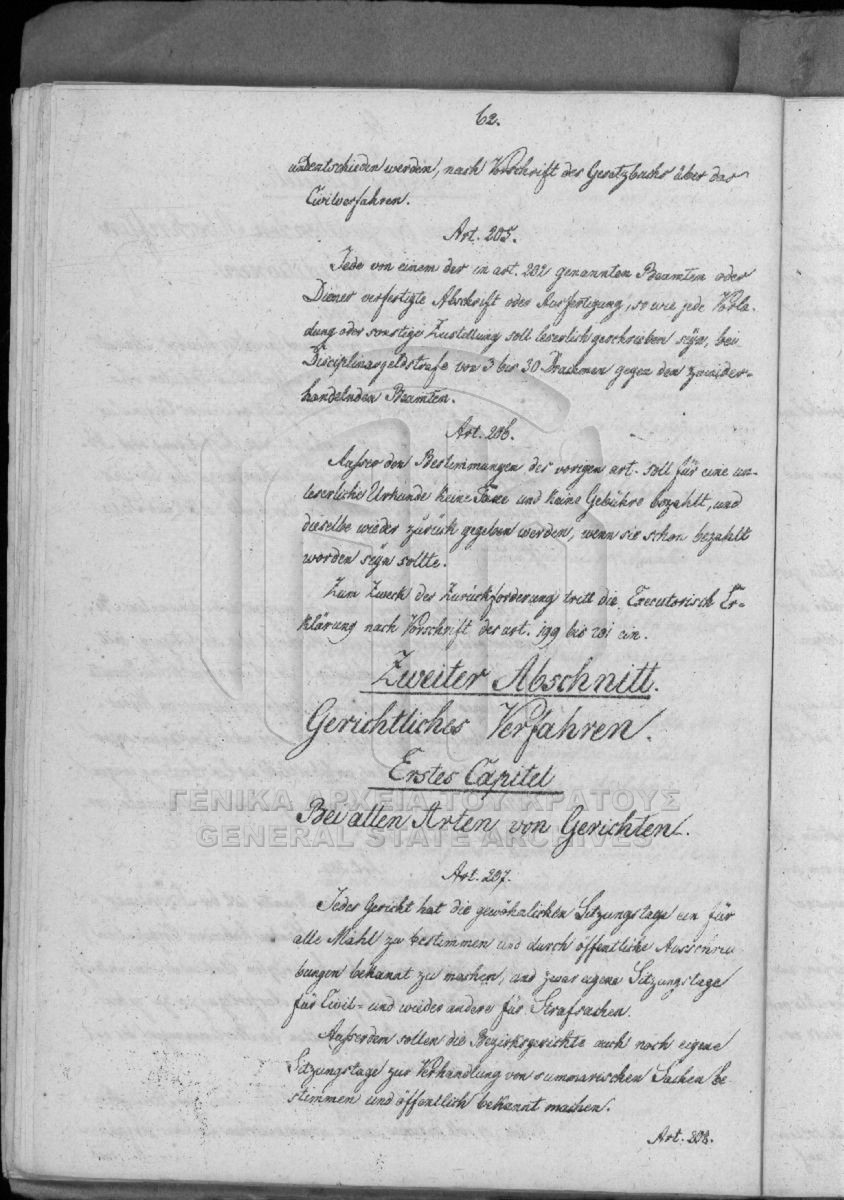 62.
und entschieden werden, nach Vorschrift des Gesetzbuchs über das
Civilverfahren.
Art. 205.
Jede von einem der in art. 202 genannten Beamten oder
Diener verfertigte Abschrift oder Ausfertigung, so wie jede Vorla-
dung oder sonstige Zustellung soll leserlich geschrieben seÿn, bei
Disciplinargeldstrafe von 3 bis 30 Drachmen gegen den zuwider-
handelnden Beamten.
Art. 206.
Ausser den Bestimmungen des vorigen art. soll für eine un-
leserliche Urkunde keine Taxe und keine Gebühre bezahlt, und
dieselbe wieder zurück gegeben werden, wenn sie schon bezahlt
worden seÿn sollte.
Zum Zweck der Zurückforderung tritt die Executorisch Er-
klärung nach Vorschrift der art. 199 bis 201 ein.
Zweiter Abschnitt.
Gerichtliches Verfahren.
Erstes Capitel
Bei allen Arten von Gerichten.
ΓΕΝΙΚΑ ΑΡΧΕΙΑ ΤΟΥ ΚΡΑΤΟΥΣ
GENERAL STATE ARCHIVES
Art. 207.
Jedes Gericht hat die gewöhnlichen Sitzungstage ein für
alle Mahl zu bestimmen und durch öffentliche Ausschrei-
bungen bekannt zu machen, und zwar eigene Sitzungstage
für Civil- und wieder andere für Strafsachen.
Ausserdem sollen die Bezirksgerichte auch noch eigene
Sitzungstage zur Verhandlung von summarischen Sachen be
stimmen und öffentlich bekannt machen.
Art. 208.